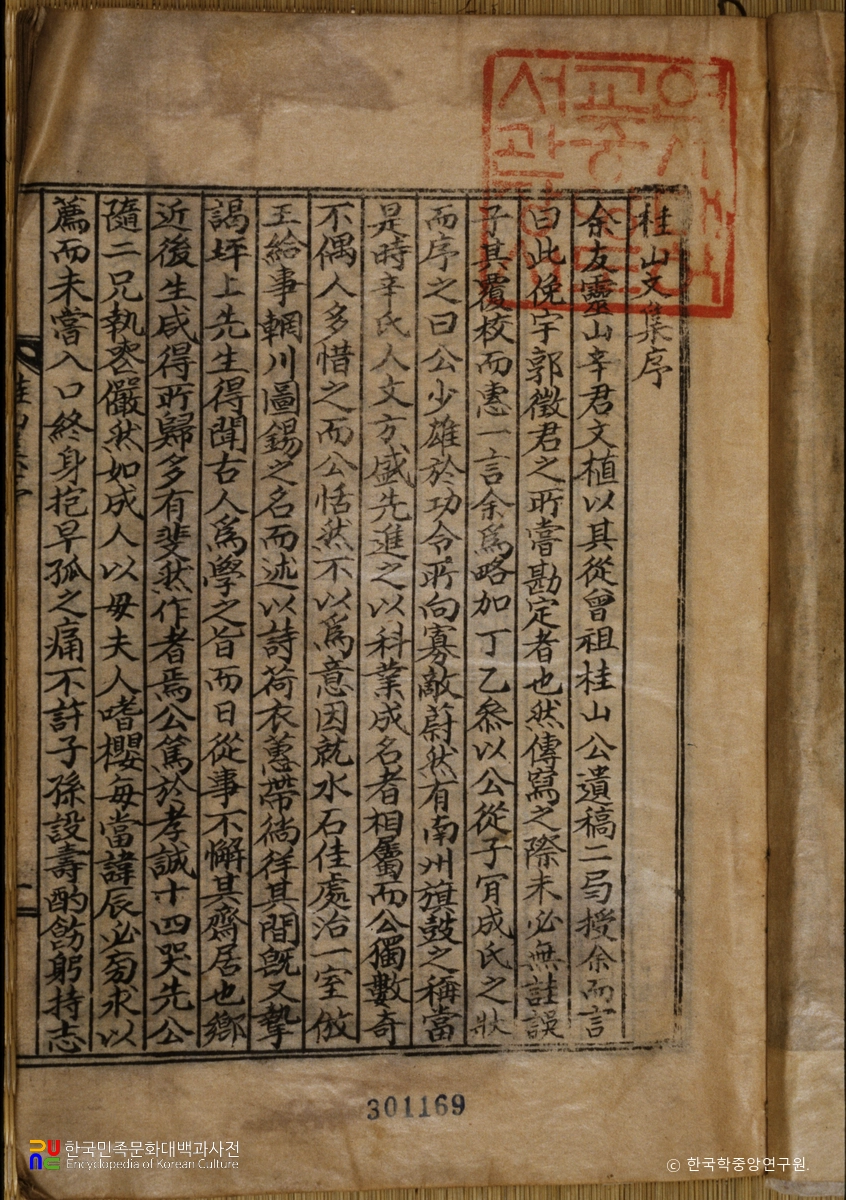 桂山文集序
余友靈山辛君文植以其從曾祖桂山公遺稿二局授余而言
曰此俛宇郭徵君之所嘗勘定者也然傳寫之際未必無註誤
子其覆校而惠一言余爲略加丁乙叅以公從子甯成氏之狀
而序之曰公少雄於功令所向寡敵蔚然有南州旗鼓之稱當
是時辛氏人文方盛先進之以科業成名者相屬而公獨數奇
不偶人多惜之而公恬然不以爲意因就水石佳處治一室倣
王給事輞川圖錫之名而述以詩荷衣蕙帶徜徉其間旣又摯
謁坪上先生得聞古人爲學之旨而日從事不懈其齋居也鄉
近後生咸得所歸多有斐然作者焉公篤於孝誠十四哭先公
隨二兄執喪儼然如成人以毋夫人嗜櫻每當諱辰必匄求以
薦而未嘗入口終身抱早孤之痛不許子孫設壽酌飭躬持志
301169
한국민족문화대백과사전
Encyclopedia of Korean Culture
© 한국학중앙연구원